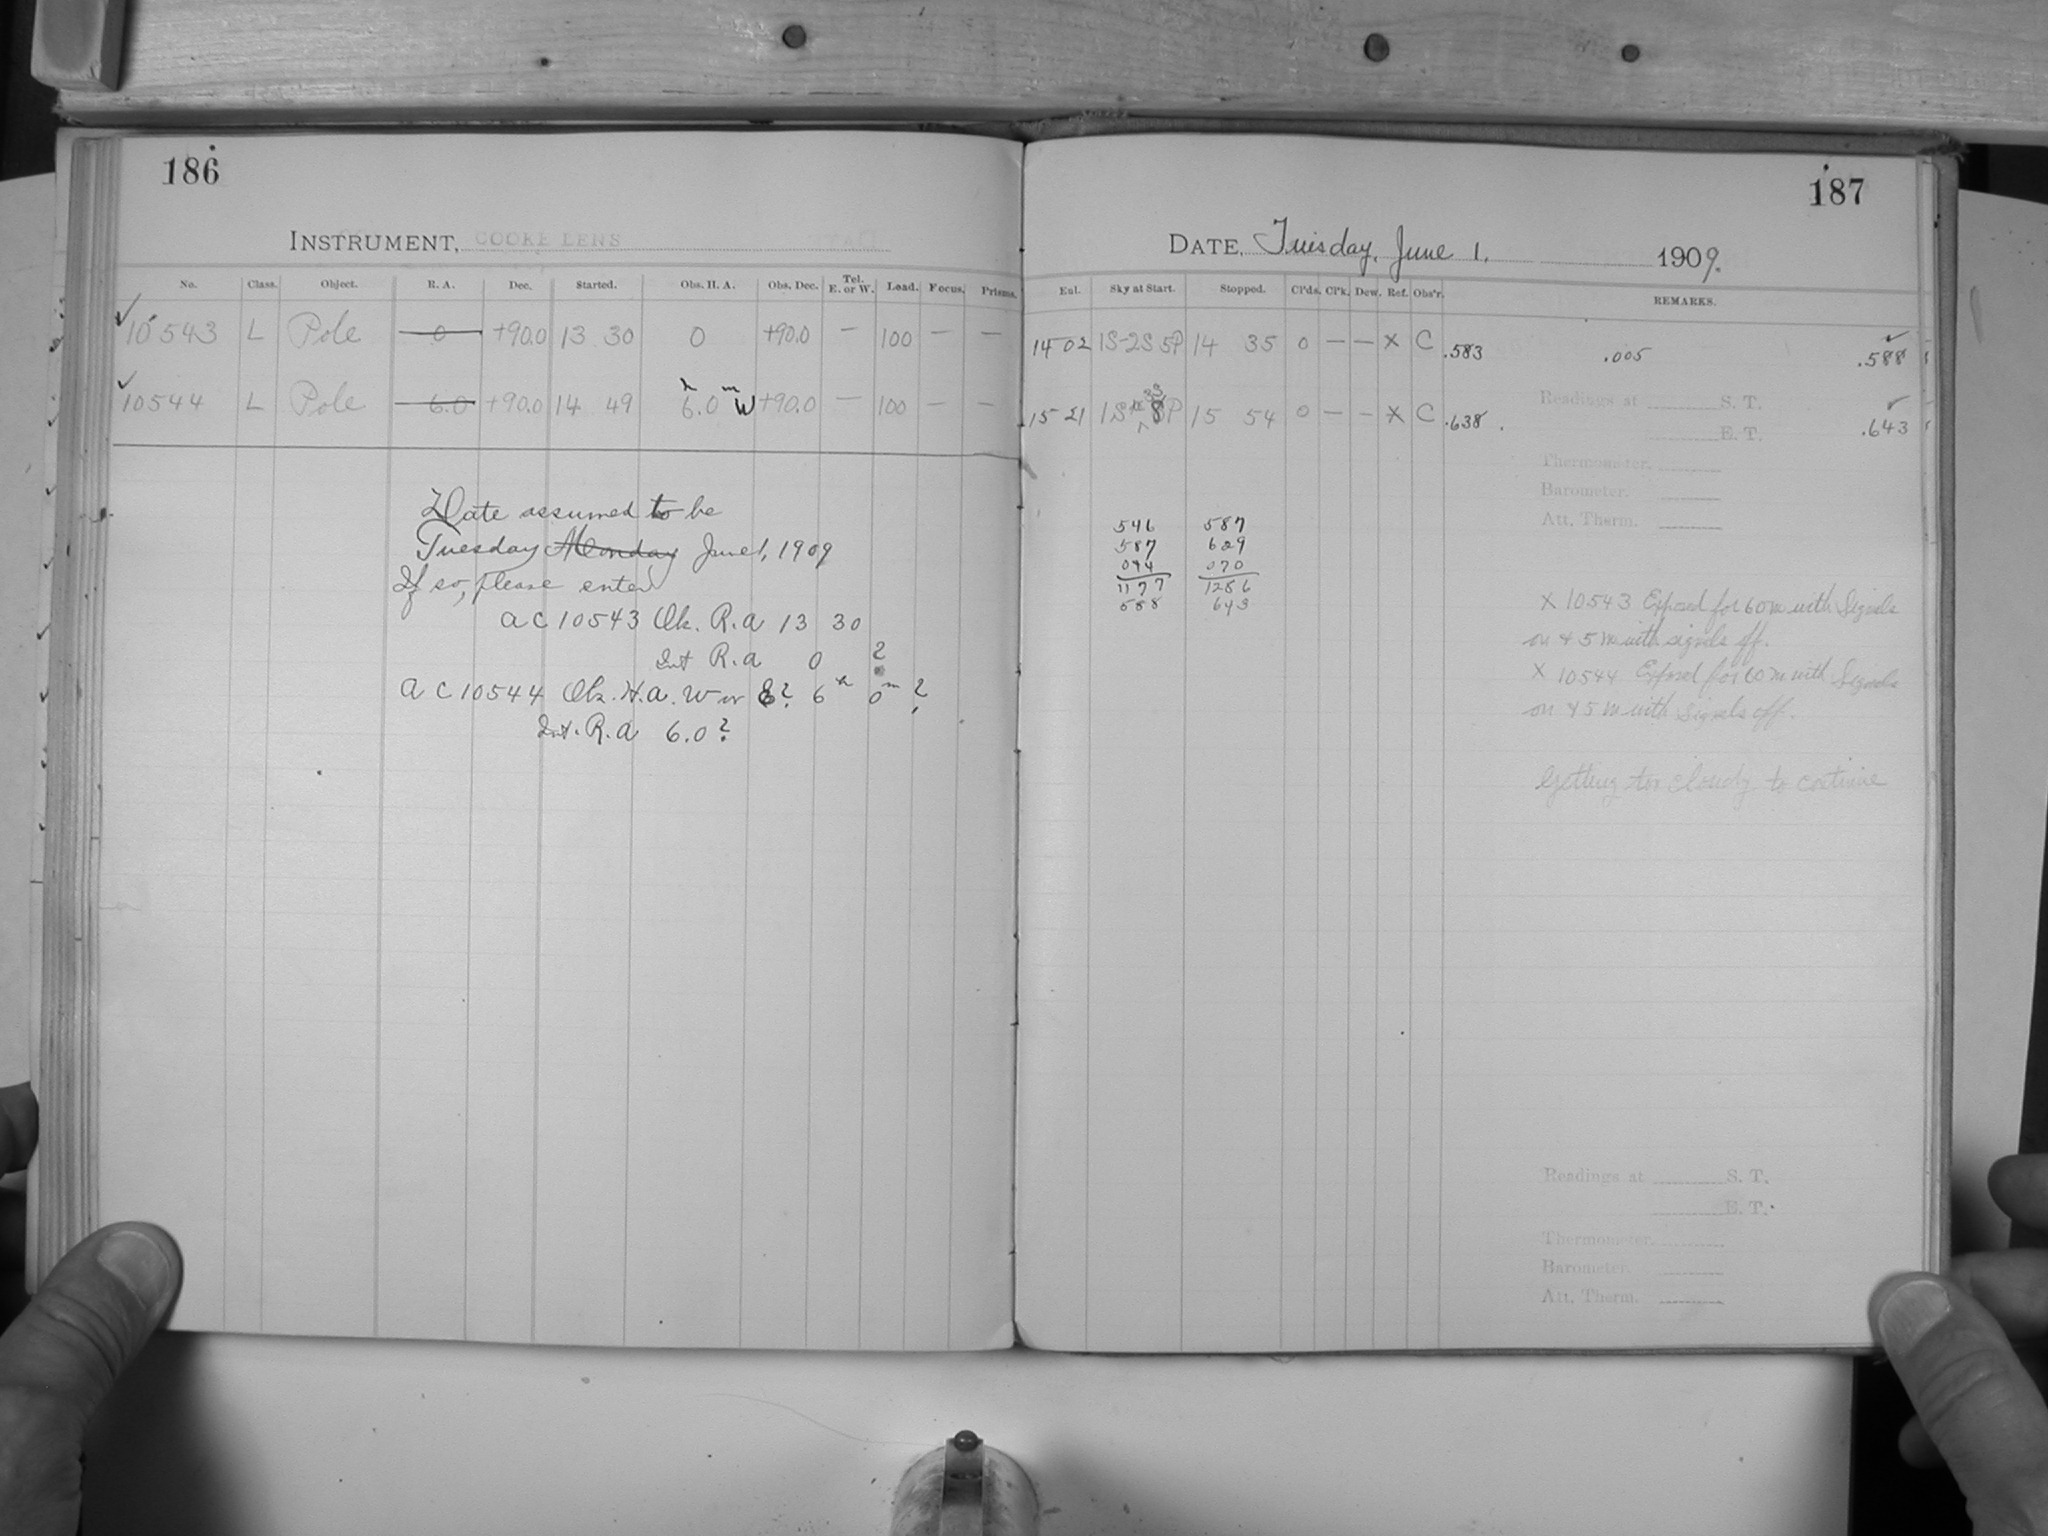 186
INSTRUMENT, COOKE LENS
No. Class. Object. R. A. Dec. Started. Obs. H. A. Obs. Dec. Tel. E. or W. Load. Focus. Prisms.
10543 L Pole 0 +90.0 13 30 0 +90.0 — 100 — —
10544 L Pole 6.0 +90.0 14 49 6.0 h m W +90.0 — 100 — —
Date assumed to be
Tuesday Monday June 1, 1909
If so, please enter
A C 10543 Ob. R.A 13 30
Int R.A 0 ?
A C 10544 Ob. H.A. W or E? 6 h 0 m ?
Int. R.A 6.0?
187
DATE, Tuesday, June 1, 1909.
Eni. Sky at Start. Stopped. Cl'ds. Cl'k. Dew. Ref. Obs'r. REMARKS.
14 02 1S-2S 5P 14 35 0 — — X C .583 .005 .588
Readings at S. T.
15 21 15 54 0 — — X C .638 .643
E. T.
Thermometer.
Barometer.
Att. Therm.
546 587
587 629
044 070
1177 1286
588 643
X 10543 Exposed for 60m with Signals
on & 5m with signals off.
X 10544 Exposed for 60m with Signals
on & 5m with signals off.
Getting too cloudy to continue
Readings at S. T.
E. T.
Thermometer.
Barometer.
Att. Therm.